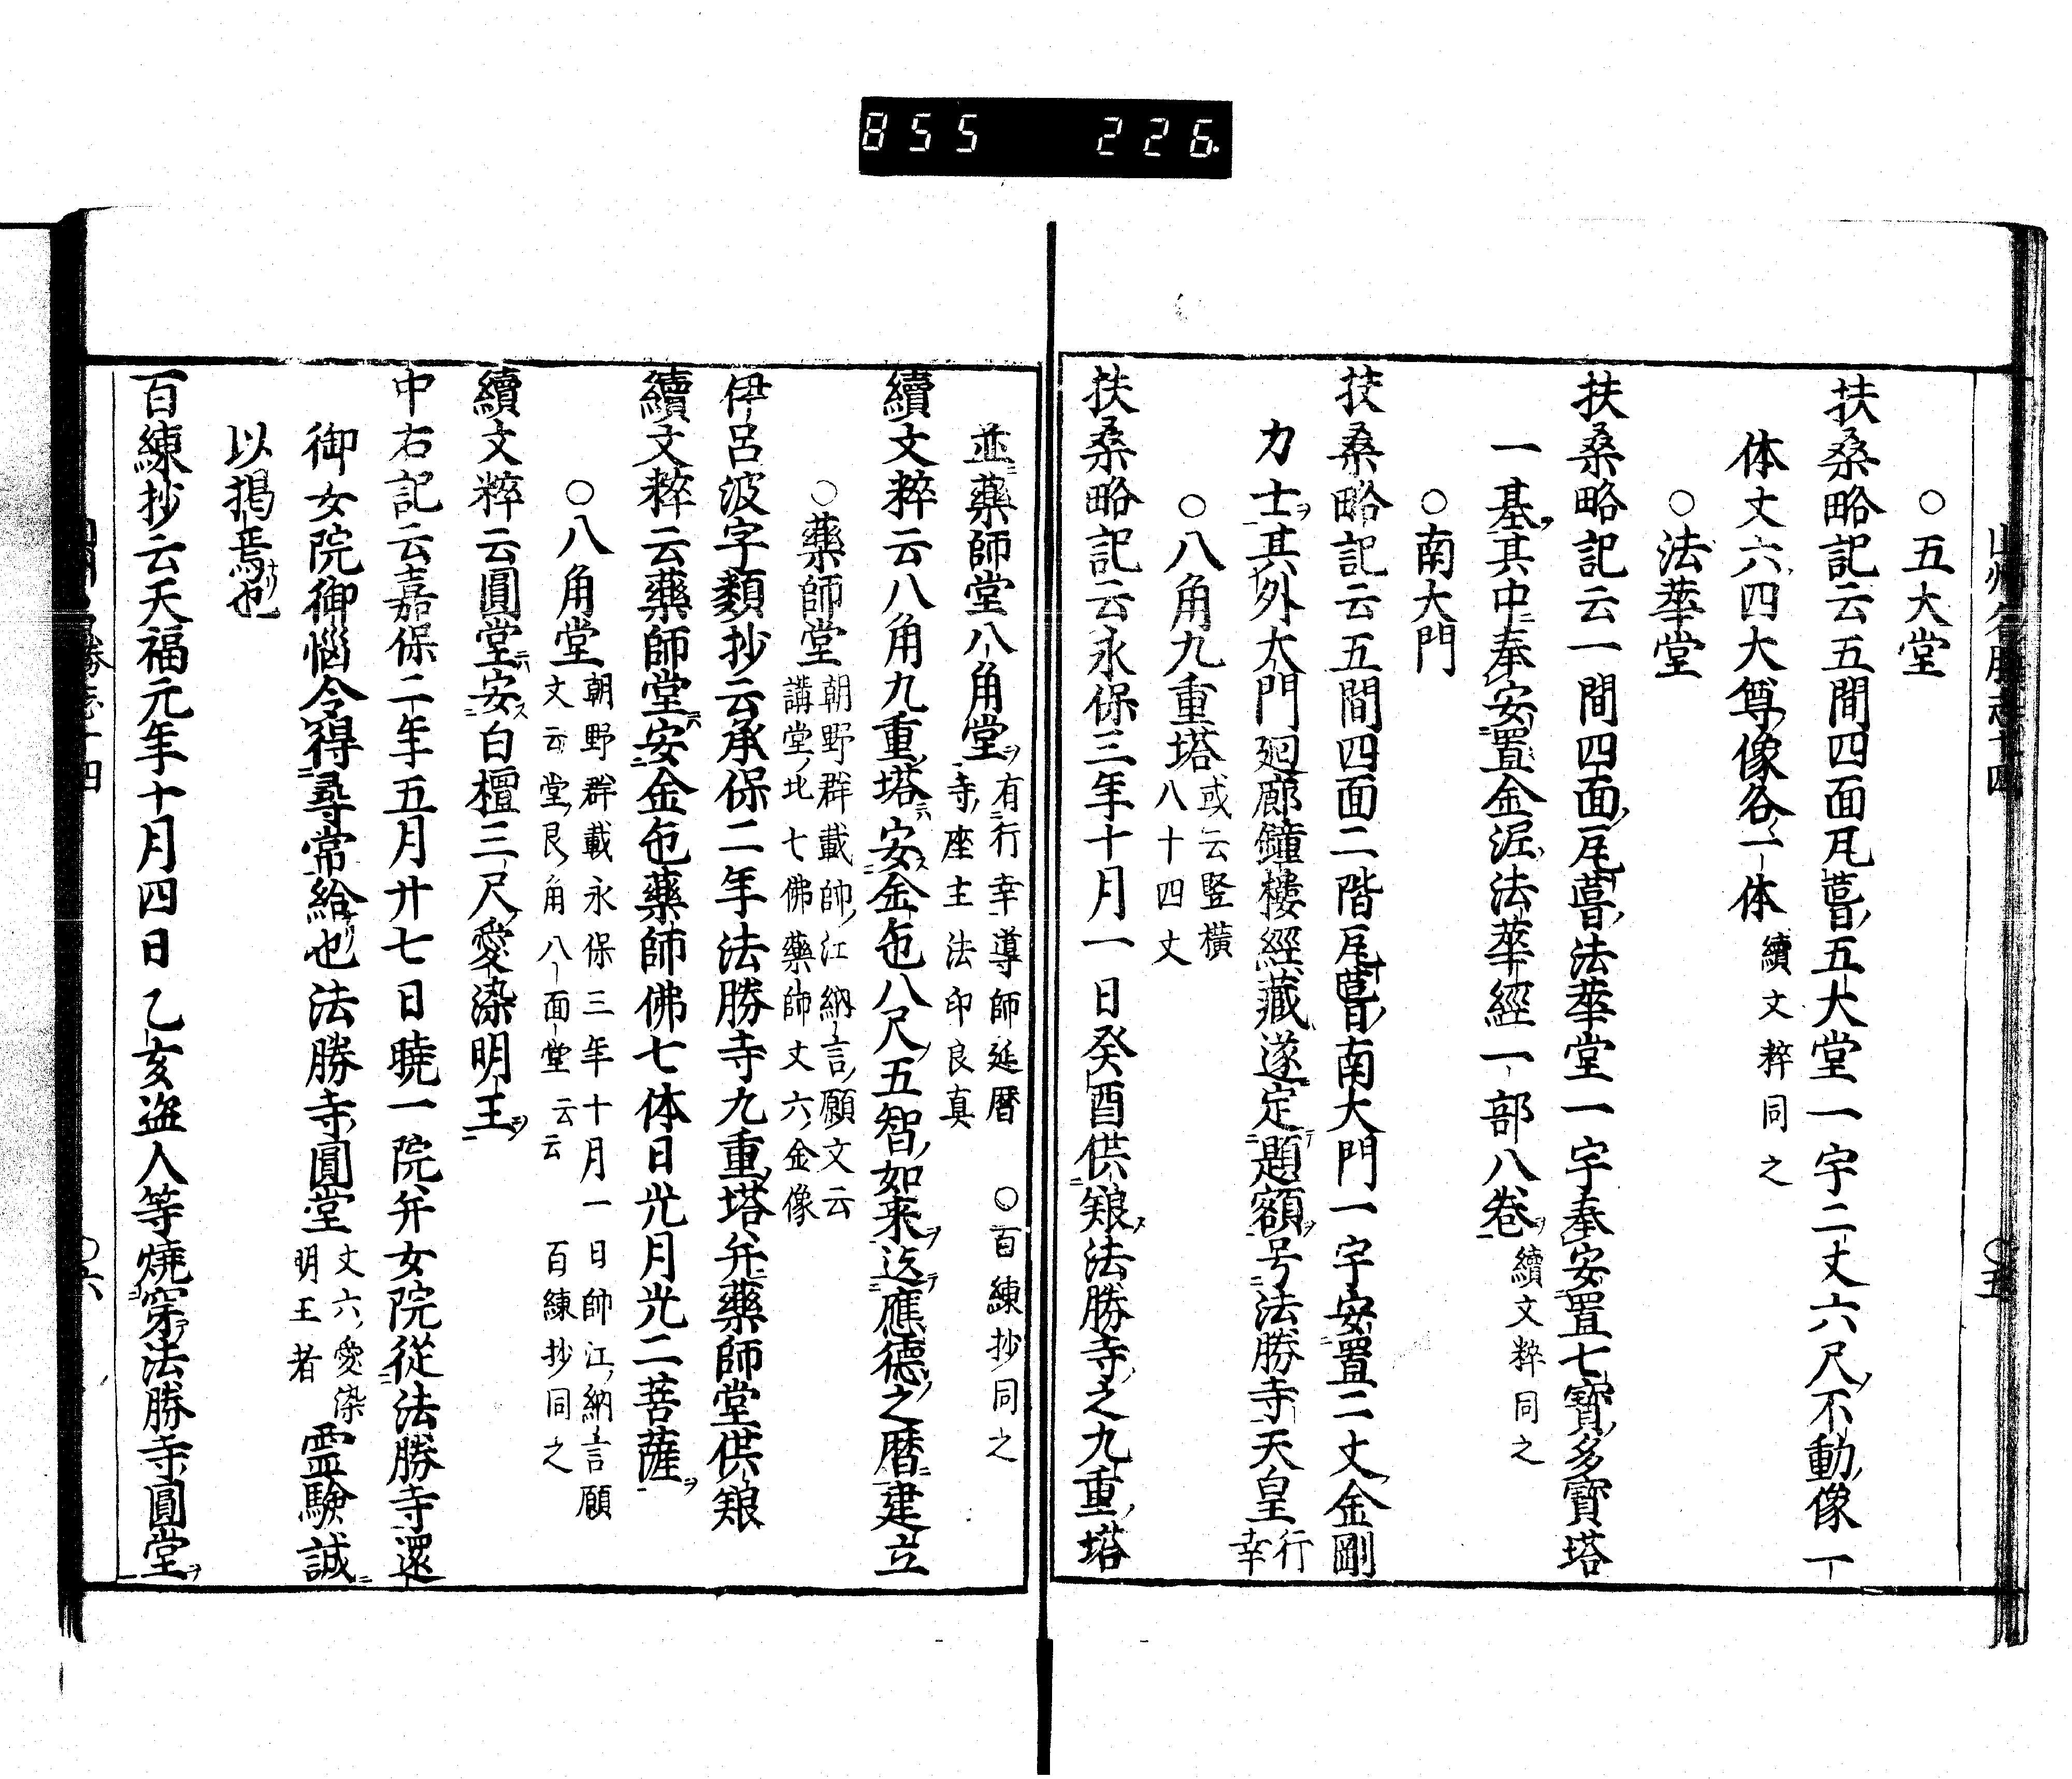 855 226
○五大堂
扶桑略記云五間四面瓦葺五大堂一宇二丈六尺不動像一
体丈六四大尊像各一体 續文粹同之
○法華堂
扶桑略記云一間四面瓦葺法華堂一宇奉安置七寶多寶塔
一基其中奉安置金泥法華經一部八卷 續文粹同之
○南大門
扶桑略記云五間四面二階瓦葺南大門一宇安置二丈金剛
力士其外大門廻廊鐘樓經藏遂定題額号法勝寺天皇行幸
○八角九重塔 或云竪横八十四丈
扶桑略記云永保三年十月一日癸酉供養法勝寺之九重塔
並藥師堂八角堂 有行幸導師延暦寺座主法印良真 ○百練抄同之
續文粹云八角九重塔安金色八尺五智如来迄應德之暦建立
○藥師堂 朝野群載帥江納言願文云講堂北七佛藥師丈六金像
伊呂波字類抄云承保二年法勝寺九重塔并藥師堂供養
續文粹云藥師堂安金色藥師佛七体日光月光二菩薩
○八角堂 朝野群載永保三年十月一日帥江納言願文云堂艮角八面堂云云 百練抄同之
續文粹云圓堂安白檀三尺愛染明王
中右記云嘉保二年五月廿七日曉一院并女院從法勝寺還
御女院御惱令得尋常給也法勝寺圓堂 丈六愛染明王者 霊験誠
以掲焉也
百練抄云天福元年十月四日乙亥盗人等燒穿法勝寺圓堂